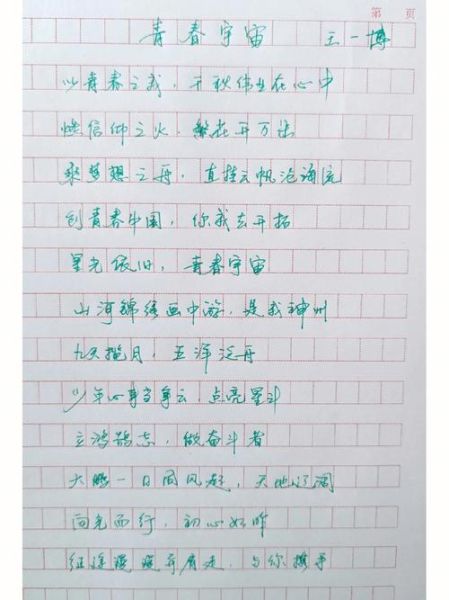 第 页
青春宇宙 王一博
以青春之我，千秋伟业在心中
燃信仰之火，开万
乘梦想之舟，直挂云帆沧海流
创青春中国，你我去开拓
星光依旧，青春宇宙
山河锦绣画中游，是我神州
九天揽月，五洋泛舟
少年心事当争云，点亮星斗
立鸿鹄志，做奋斗者
大鹏一日同风起，天地辽阔
向光而行，初心如昨
征途漫漫并肩走，与你携手